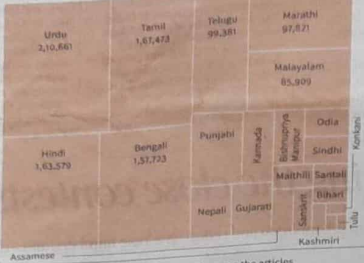 Urdu
2,10,861
Tamil
1,67,473
Telugu
99,381
Marathi
97,871
Malayalam
85,909
Hindi
1,63,579
Bengali
1,57,723
Punjabi
Kannada
Bishnupriya
Manipur
Odia
Sindhi
Konkani
Maithili
Santali
Nepali
Gujarati
Sanskrit
Bihari
Tulu
Assamese
Kashmiri
the articles